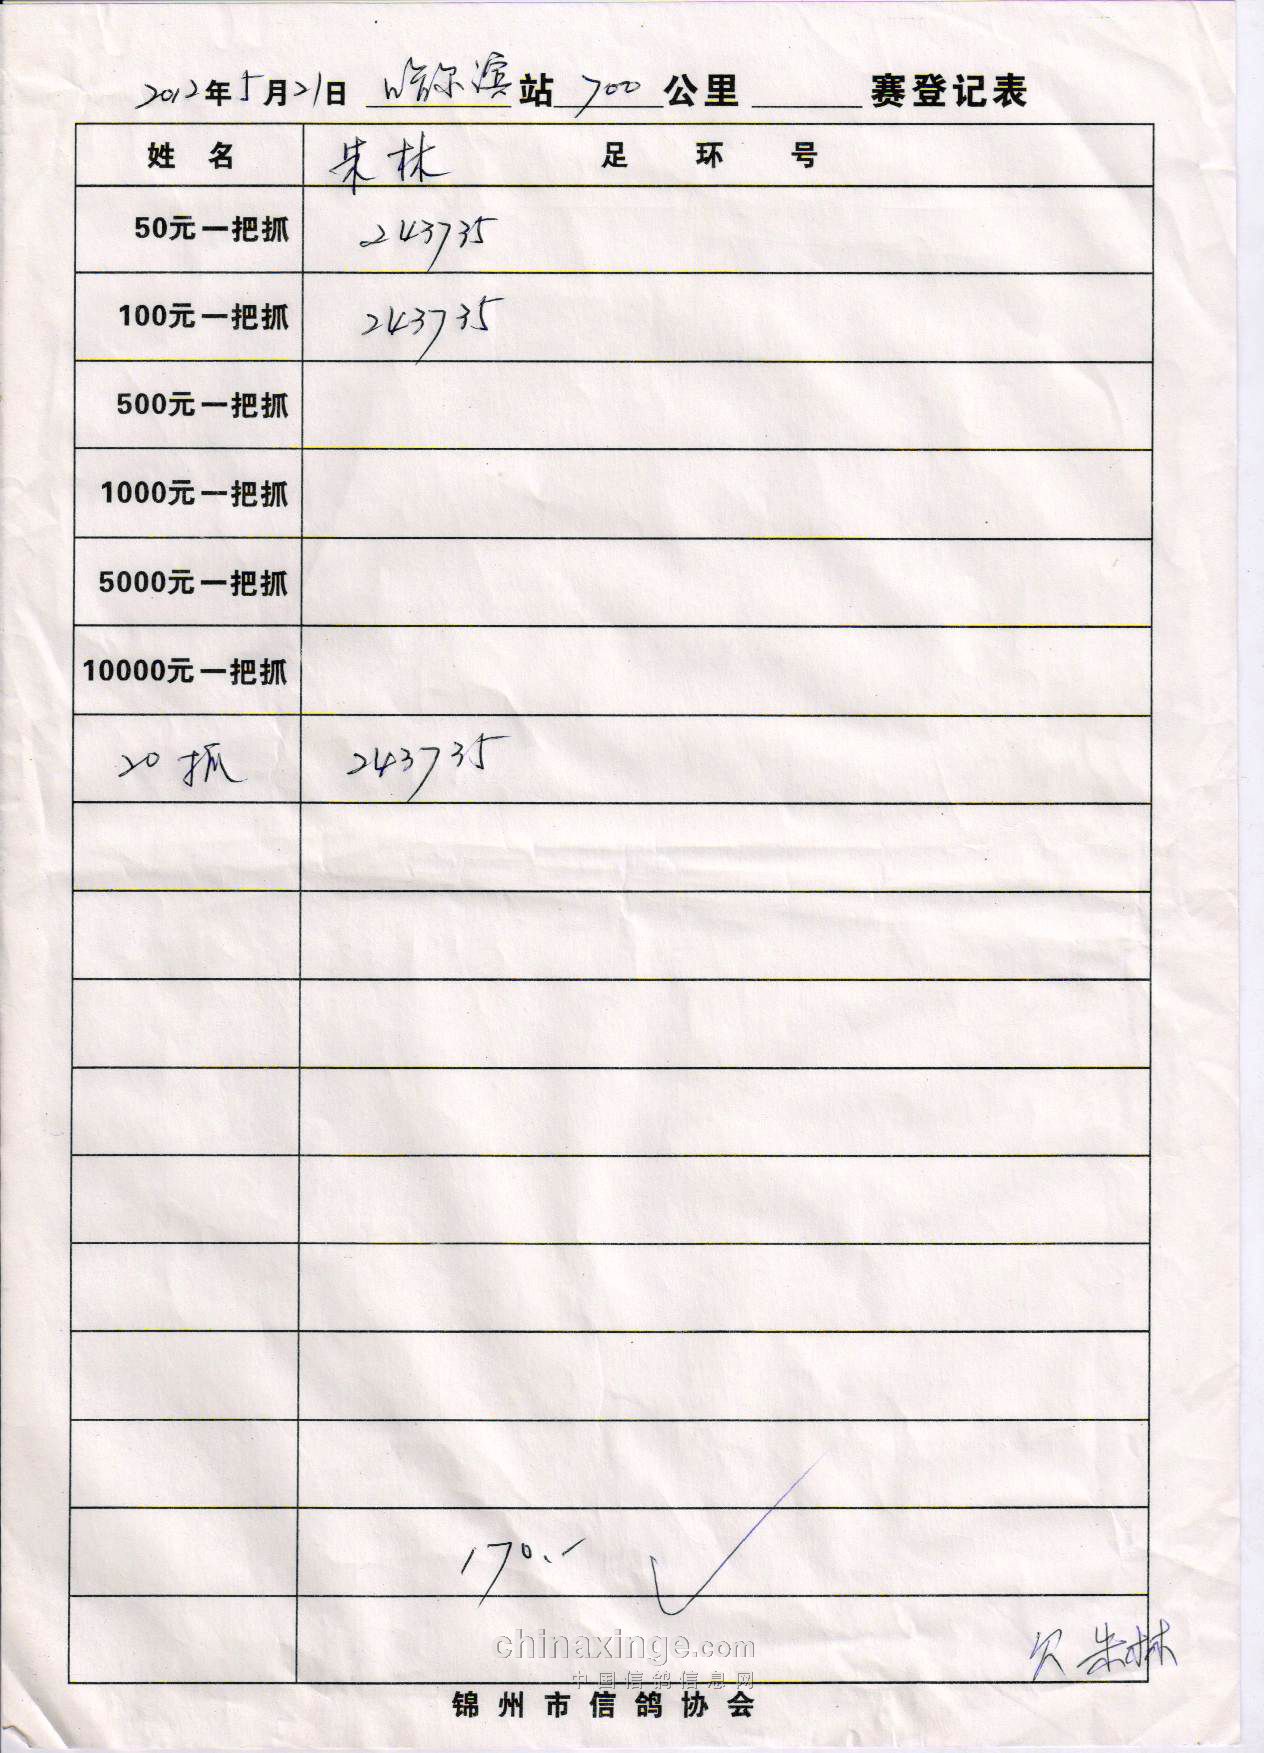 2012年5月21日 哈尔滨站 700公里 赛登记表
姓 名 朱林 足 环 号
50元一把抓 243735
100元一把抓 243735
500元一把抓
1000元一把抓
5000元一把抓
10000元一把抓
20抓 243735
170.-
欠 朱林
chinaxinge.com
中国信鸽信息网
锦州市信鸽协会